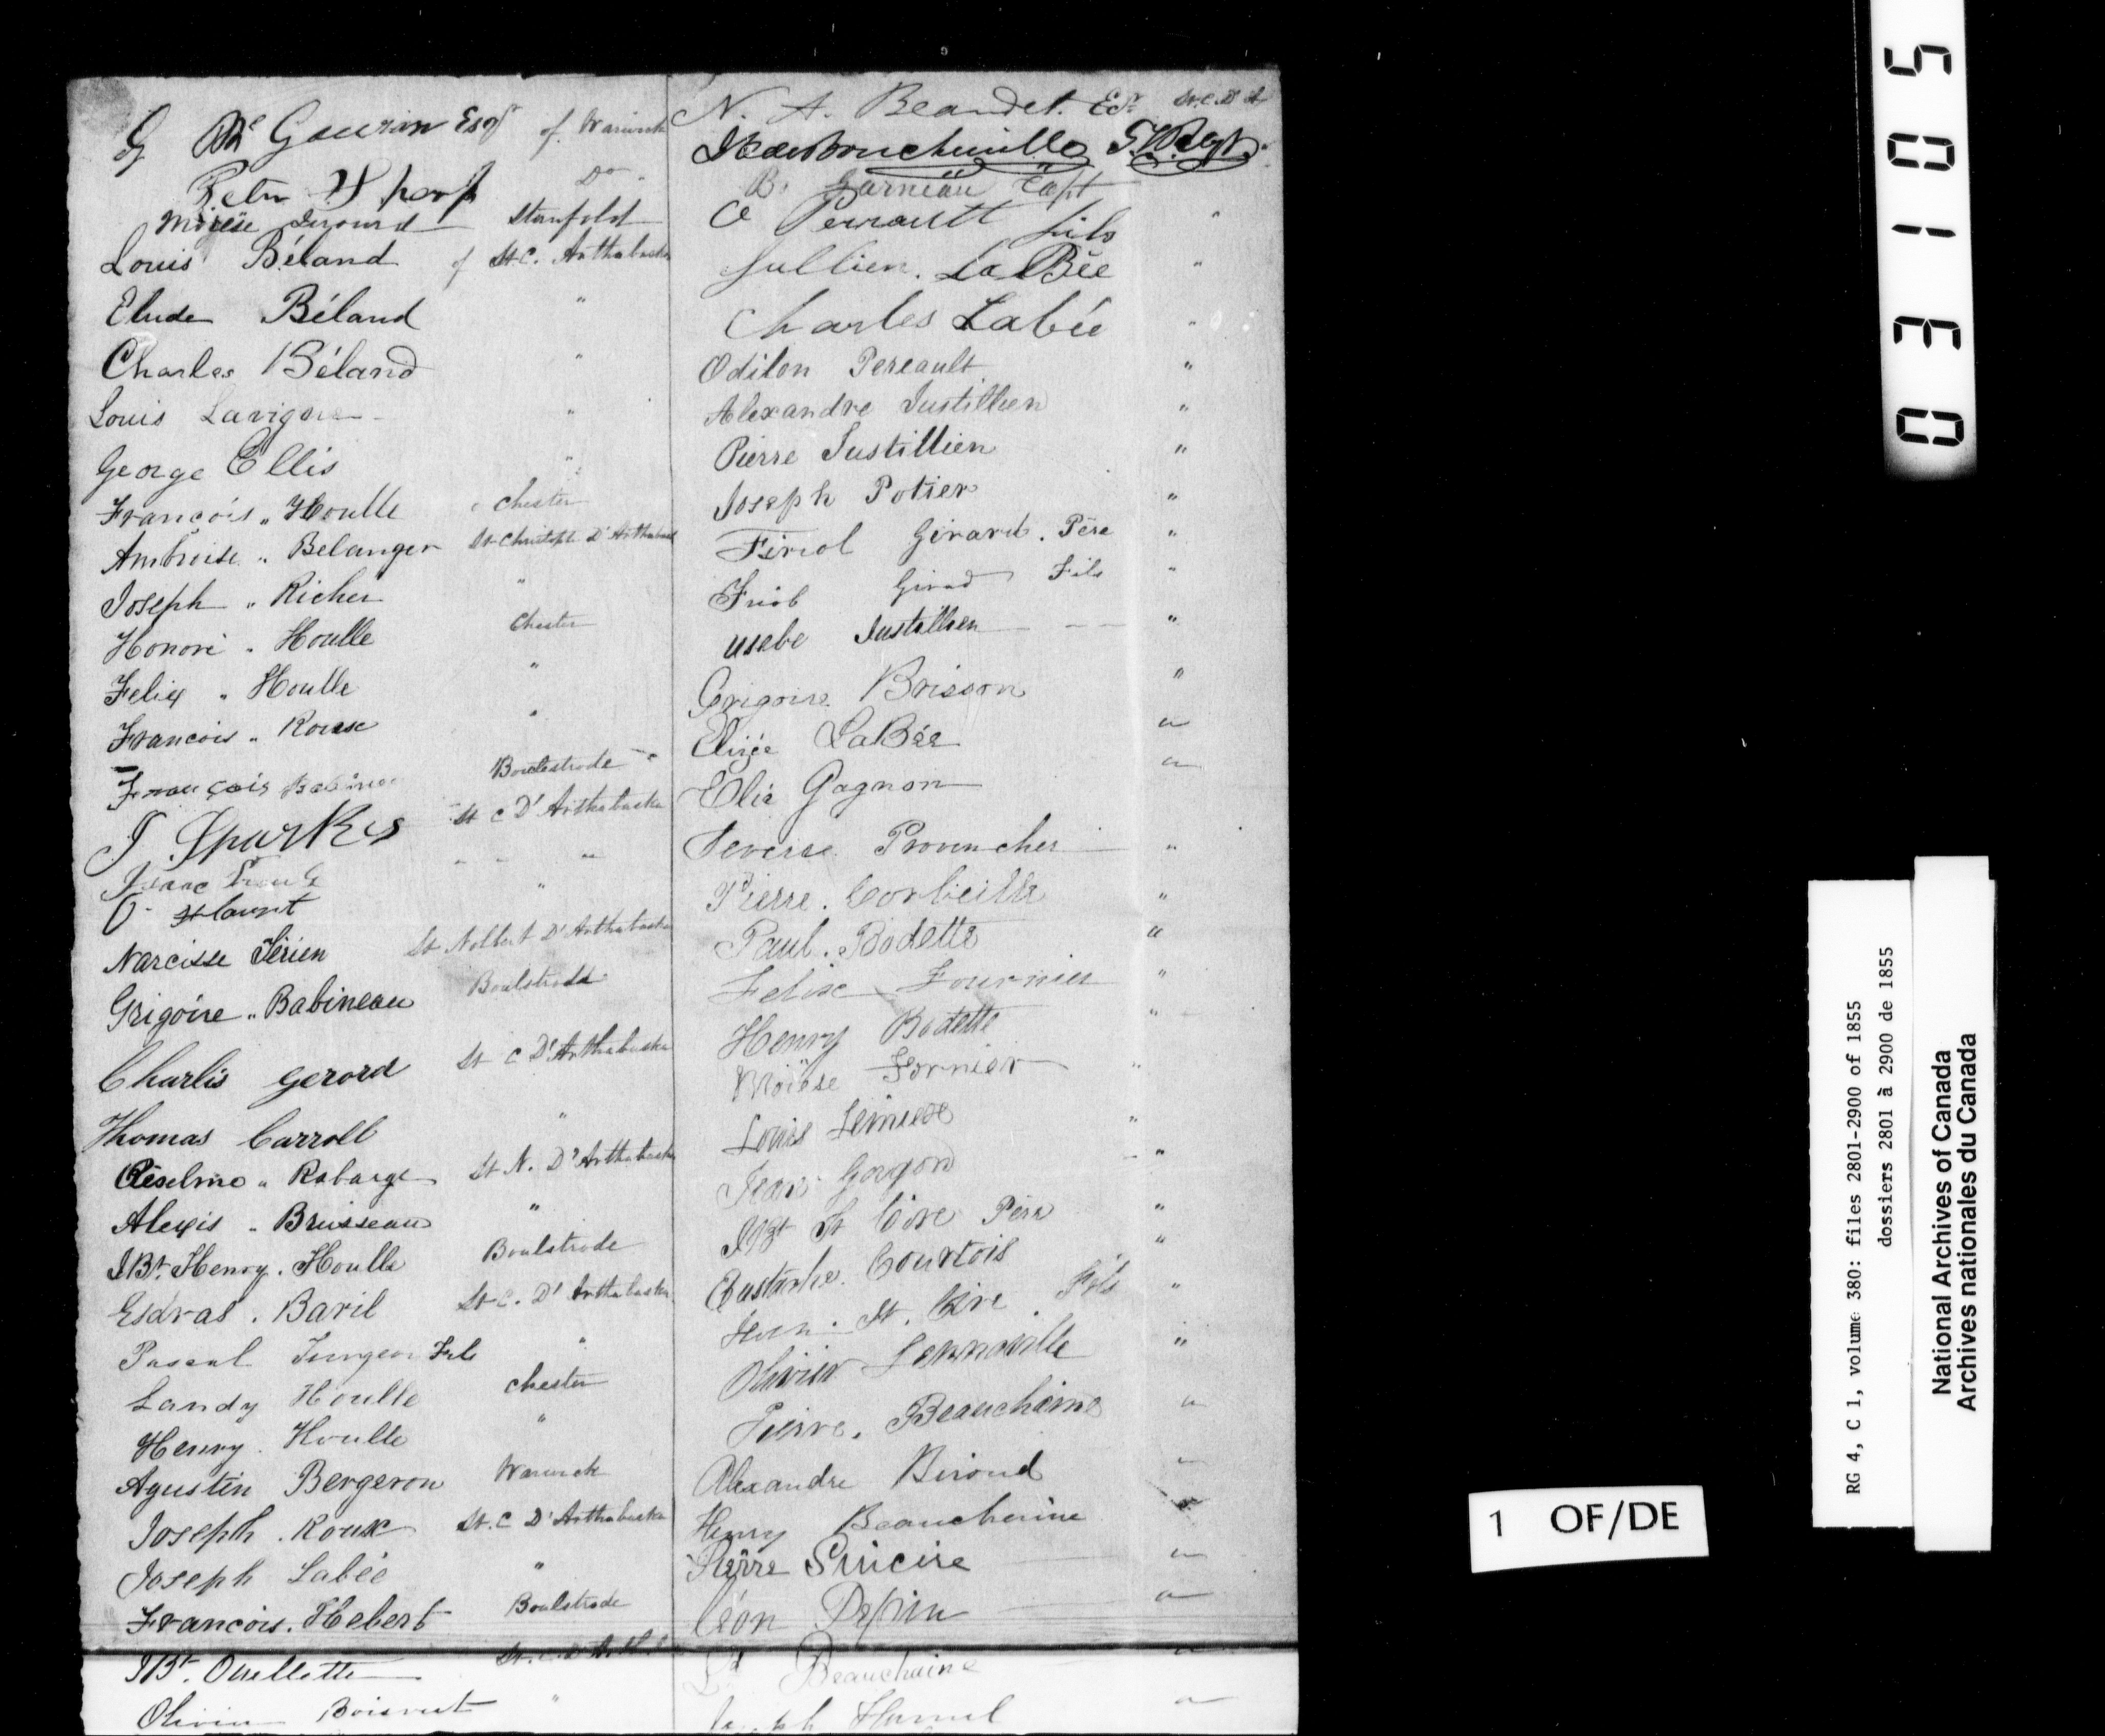 Gouvion Esqr of Warwick
Peter Do
Stanfold
Louis Béland of St C. Arthabaska
Elude Béland "
Charles Béland "
Louis Lavigne "
George Ellis "
François " Houlle Chester
Ambroise " Belanger St Christophe D'Arthabask
Joseph " Richer "
Honoré " Houlle Chester
Felix " Houlle "
Francois " Roux "
François Babineau Boulstrode
J Sparkes St C D'Arthabaska
Isaac "
O "
Narcisse Térien St Nolbert D'Arthabaska
Grigoire " Babineau Boulstrode
Charlis Gerord St C D'Arthabaska
Thomas Carroll "
Roberge St N. D'Arthabaska
Alexis " Brusseau "
J Bt. Henry. Houlle Boulstrode
Esdras . Baril St C. D'Arthabaska
Pascal Turgeon Fils "
Landy Houlle Chester
Henry. Houlle "
Agustin Bergeron Warwick
Joseph . Roux St. C D'Arthabaska
Joseph Labée "
Francois. Hebert Boulstrode
J Bt. Ouellette St. C. D'Arth
Olivier Boisvert "
N. A. Beaudet. Ecr St. C. D'A
B. Garneau Capt
O Perrault fils "
Jullien. LaBée "
Charles Labée "
Odilon Pereault "
Alexandre Justillien "
Pierre Justillien "
Joseph Potier "
Firiol Girard. Père "
Girad Fils "
usebe Justillien "
Grigoire Brisson "
Elizée LaBée "
Elie Gagnon "
Severse Provencher "
Pierre. Corbeille "
Paul. Bodette "
Felix Fournier "
Henry Bodette "
Moïese Fornier "
Louis Lemieux "
Jean "
J Bt St Cire Père "
Eustache. Courtois "
Jean. St. Cire. Fils "
Olivier "
Pierre. Beauchaine "
Alexandre Biroud "
Henry Beauchenne "
Pierre Sincire "
Léon Pepin "
Beauchaine "
Joseph Hamel "
03105
1 OF/DE
RG 4, C 1, volume 380: files 2801-2900 of 1855
dossiers 2801 à 2900 de 1855
National Archives of Canada
Archives nationales du Canada